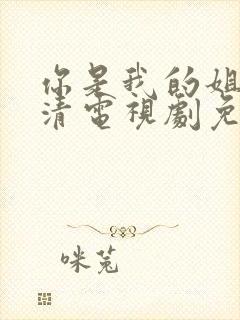 你是我的姐
清電視劇免
咪兔